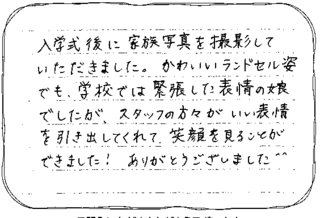 入学式後に家族写真を撮影して
いただきました。かわいいランドセル姿
でも、学校では緊張した表情の娘
でしたが、スタッフの方々がいい表情
を引き出してくれて、笑顔を見ることが
できました! ありがとうございました^^